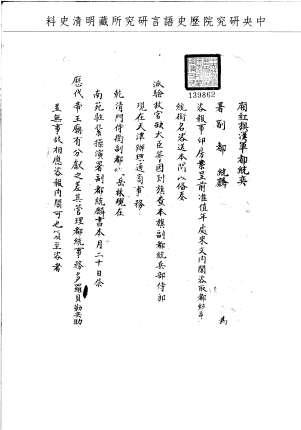 中央研究院歷史語言研究所藏明清史料
139862
廂紅旗漢軍都統英
署副都統麟 為
咨報事印房案呈前准值年處來文內開咨取都統副
統銜名咨送本門以備奏
派驗放官缺大臣等因到旗查本旗副都統兵部侍郎
現在天津辦理通商事務
乾清門侍衛副都統 岳 現在
南苑駐紮操演署副都統麟書本月二十日係
歷代帝王廟有分獻之差其管理都統事務多羅貝勒奕劻
並無事故相應咨報內閣可也須至咨者